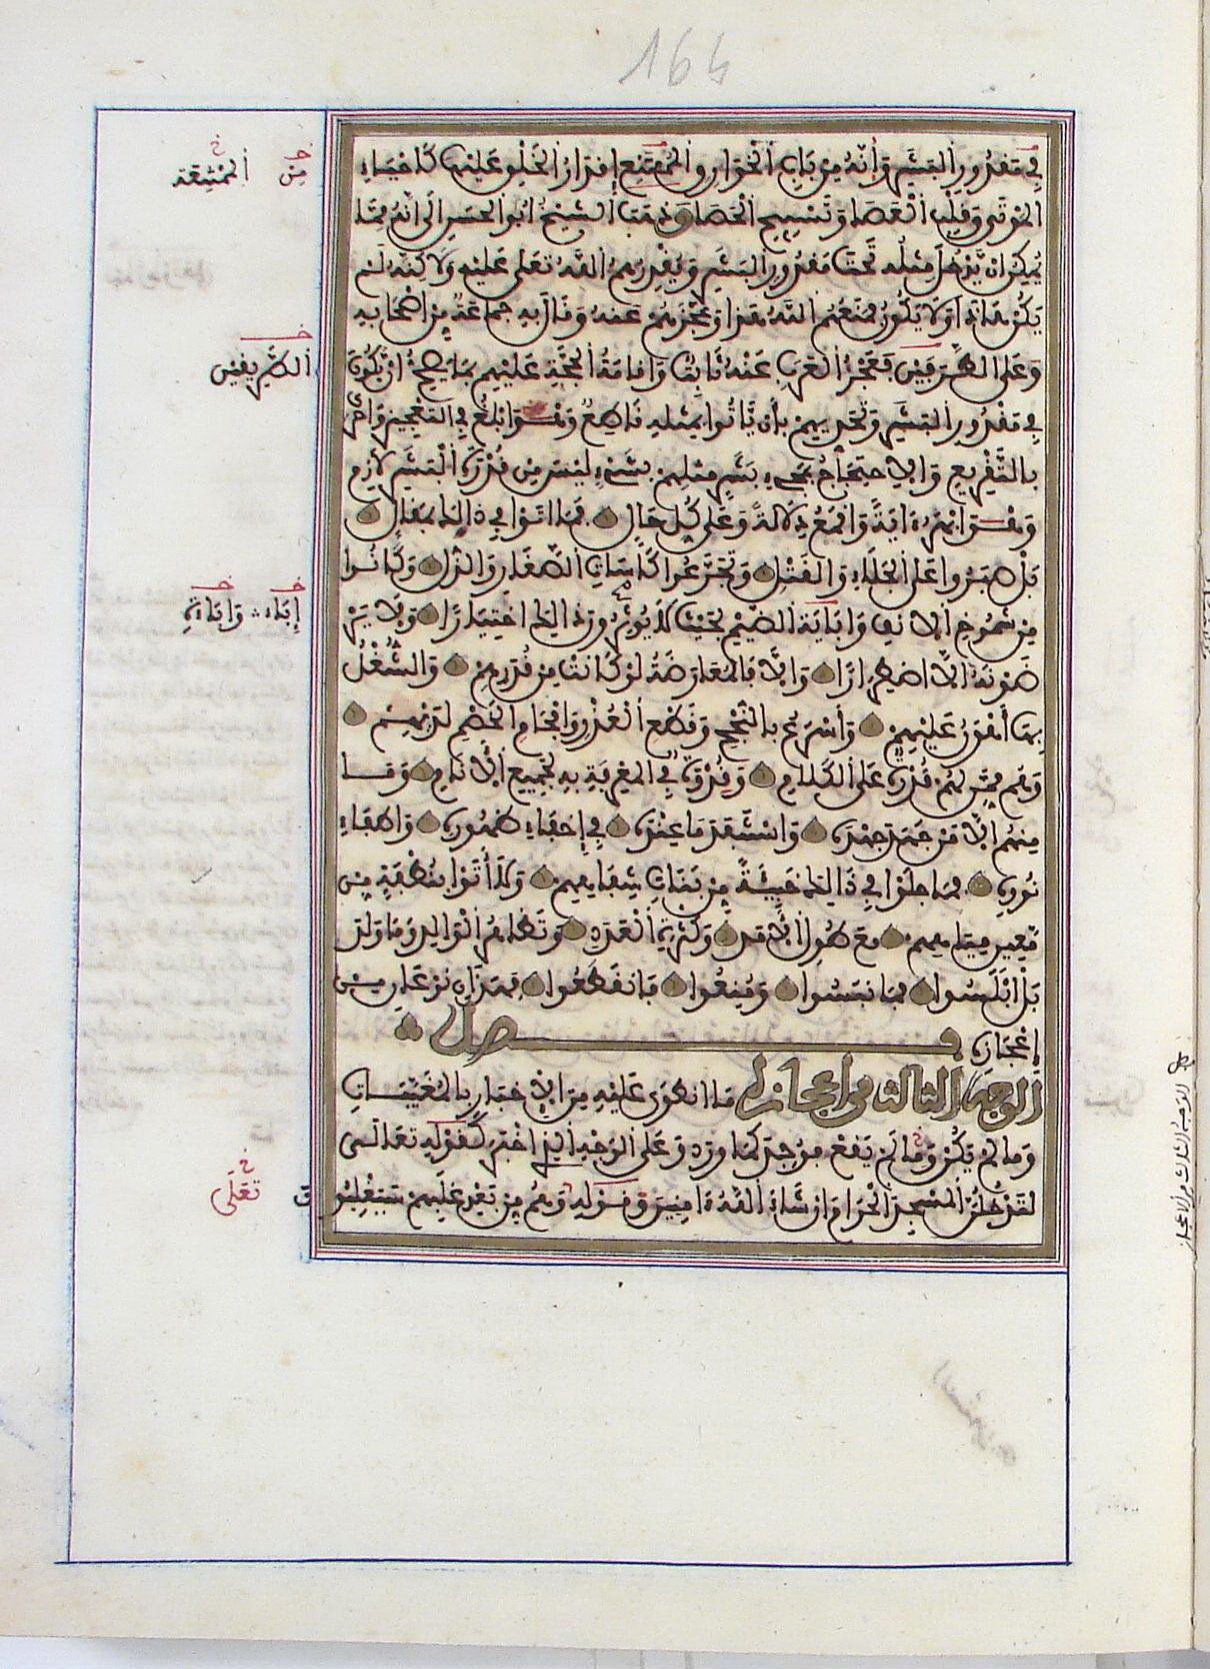 164
في مقدور البشر وأنه من باب الخوارق والممتنع إقدار الخلق عليها كإحياء
الموتى وقلب العصا وتسبيح الحصا وذهب الشيخ أبو الحسن إلى أنه مما
يمكن ان يدخل مثله تحت مقدور البشر ويقدرهم الله تعلى عليه ولاكنه لم
يكن هاذا ولا يكون فمنعهم الله هذا وعجزهم عنه وقال به جماعة من أصحابه
وعلى الطريقين فعجز العرب عنه ثابت وإقامة الحجة عليهم بما يصح ان يكون
في مقدور البشر وتحديهم بأن ياتوا بمثله قاطع وهو ابلغ في التعجيز وأحرى
بالتقريع والاحتجاج بمجيء بشر مثلهم بشيء ليس من قدرة البشر لازم
وهو ابهر ءاية واقمع دلالة وعلى كل حال فما اتوا في ذالك بمقال
بل صبروا على الجلاء والقتل وتجرعوا كاسات الصغار والذل وكانوا
من شموخ الانف واباية الضيم بحيث لا يوثرون ذالك اختيارا ولا ير
ضونه إلا اضطرارا والا فالمعارضة لو كانت من قدرهم والشغل
بها أهون عليهم وأسرع بالنجح وقطع العذر وإفحام الخصم لديهم
وهم ممن لهم قدرة على الكلام وقدوة في المعرفة به لجميع الأنام وما
منهم الا من جهد جهده واستنفد ما عنده في إخفاء ظهوره وإطفاء
نوره فما جلوا في ذالك خبيئة من بنات شفاههم ولا أتوا بنطفة من
معين مياههم مع طول الأمد وكثرة العدد وتظاهر الوالد وما ولد
بل ابلسوا فما نبسوا ومنعوا فانقطعوا فهذان نوعان من
إعجازه فصل
الوجه الثالث من اعجازه ما انطوى عليه من الإخبار بالمغيبات
وما لم يكن وما لم يقع فوجد كما ورد وعلى الوجه الذي اخبر كقوله تعالى
لتدخلن المسجد الحرام ان شاء الله ءامنين وقوله وهم من بعد غلبهم سيغلبون
خ من خ الممتنعة
خ الطريقين
خ إباءة خ واباءة
خ تعلى
الوجه الثالث من الاعجاز